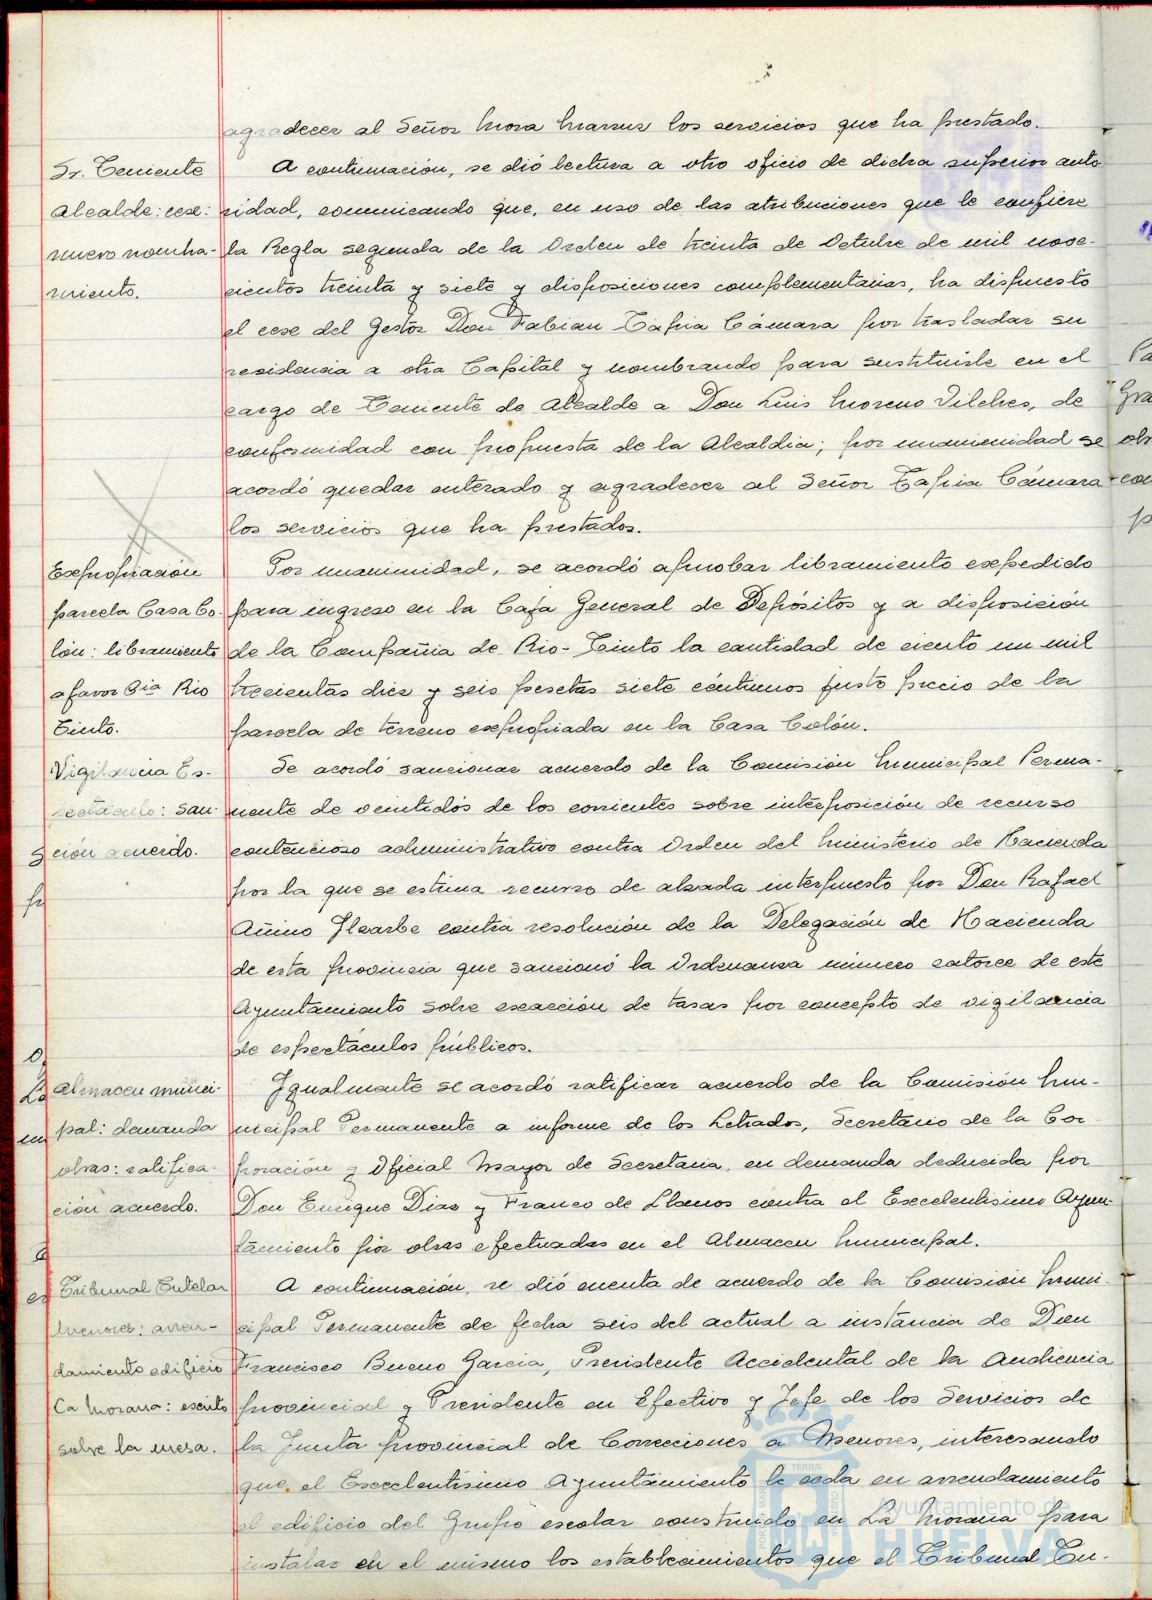 agradecer al Señor Mora Marrus los servicios que ha prestado.
Sr. Teniente
Alcalde: cese:
nuevo nombra-
miento.
A continuación, se dió lectura a otro oficio de dicha superior auto
ridad, comunicando que, en uso de las atribuciones que le confiere
la Regla segunda de la Orden de treinta de Octubre de mil nove-
cientos treinta y siete y disposiciones complementarias, ha dispuesto
el cese del Gestor Don Fabian Tapia Cámara por trasladar su
residencia a otra Capital y nombrando para sustituirle en el
cargo de Teniente de Alcalde a Don Luis Moreno Vilches, de
conformidad con propuesta de la Alcaldia; por unanimidad se
acordó quedar enterado y agradecer al Señor Tapia Cámara
los servicios que ha prestados.
Expropiación
parcela Casa Co-
lón: libramiento
a favor Cia Rio
Tinto.
Por unanimidad, se acordó aprobar libramiento expedido
para ingreso en la Caja General de Depósitos y a disposición
de la Compañia de Rio-Tinto la cantidad de ciento un mil
trecientas diez y seis pesetas siete céntimos justo precio de la
parcela de terreno expropiada en la Casa Colón.
Vigilancia Es-
pectáculo: san-
ción acuerdo.
Se acordó sancionar acuerdo de la Comisión Municipal Perma-
nente de veintidós de los corrientes sobre interposición de recurso
contencioso administrativo contra Orden del Ministerio de Hacienda
por la que se estima recurso de alzada interpuesto por Don Rafael
Añino Ilzarbe contra resolución de la Delegación de Hacienda
de esta provincia que sancionó la Ordenanza número catorce de este
Ayuntamiento sobre exacción de tasas por concepto de vigilancia
de espectáculos públicos.
Almacen munici-
pal: demanda
obras: ratifica-
ción acuerdo.
Igualmente se acordó ratificar acuerdo de la Comisión Mu-
nicipal Permanente a informe de los Letrados, Secretario de la Cor-
poración y Oficial Mayor de Secretaria, en demanda deducida por
Don Enrique Diaz y Franco de Llanos contra el Excelentisimo Ayun-
tamiento por obras efectuadas en el Almacen Municipal.
Tribunal Tutelar
Menores: arren-
damiento edificio
La Morana: escrito
sobre la mesa.
A continuación, se dió cuenta de acuerdo de la Comisión Muni-
cipal Permanente de fecha seis del actual a instancia de Don
Francisco Bueno Garcia, Presidente Accidental de la Audiencia
provincial y Presidente en Efectivo y Jefe de los Servicios de
la Junta provincial de Correcciones a Menores, interesando
que el Excelentisimo Ayuntamiento le ceda en arrendamiento
el edificio del Grupo escolar construido en La Morana para
instalar en el mismo los establecimientos que el Tribunal Tu-
Ayuntamiento de
HUELVA